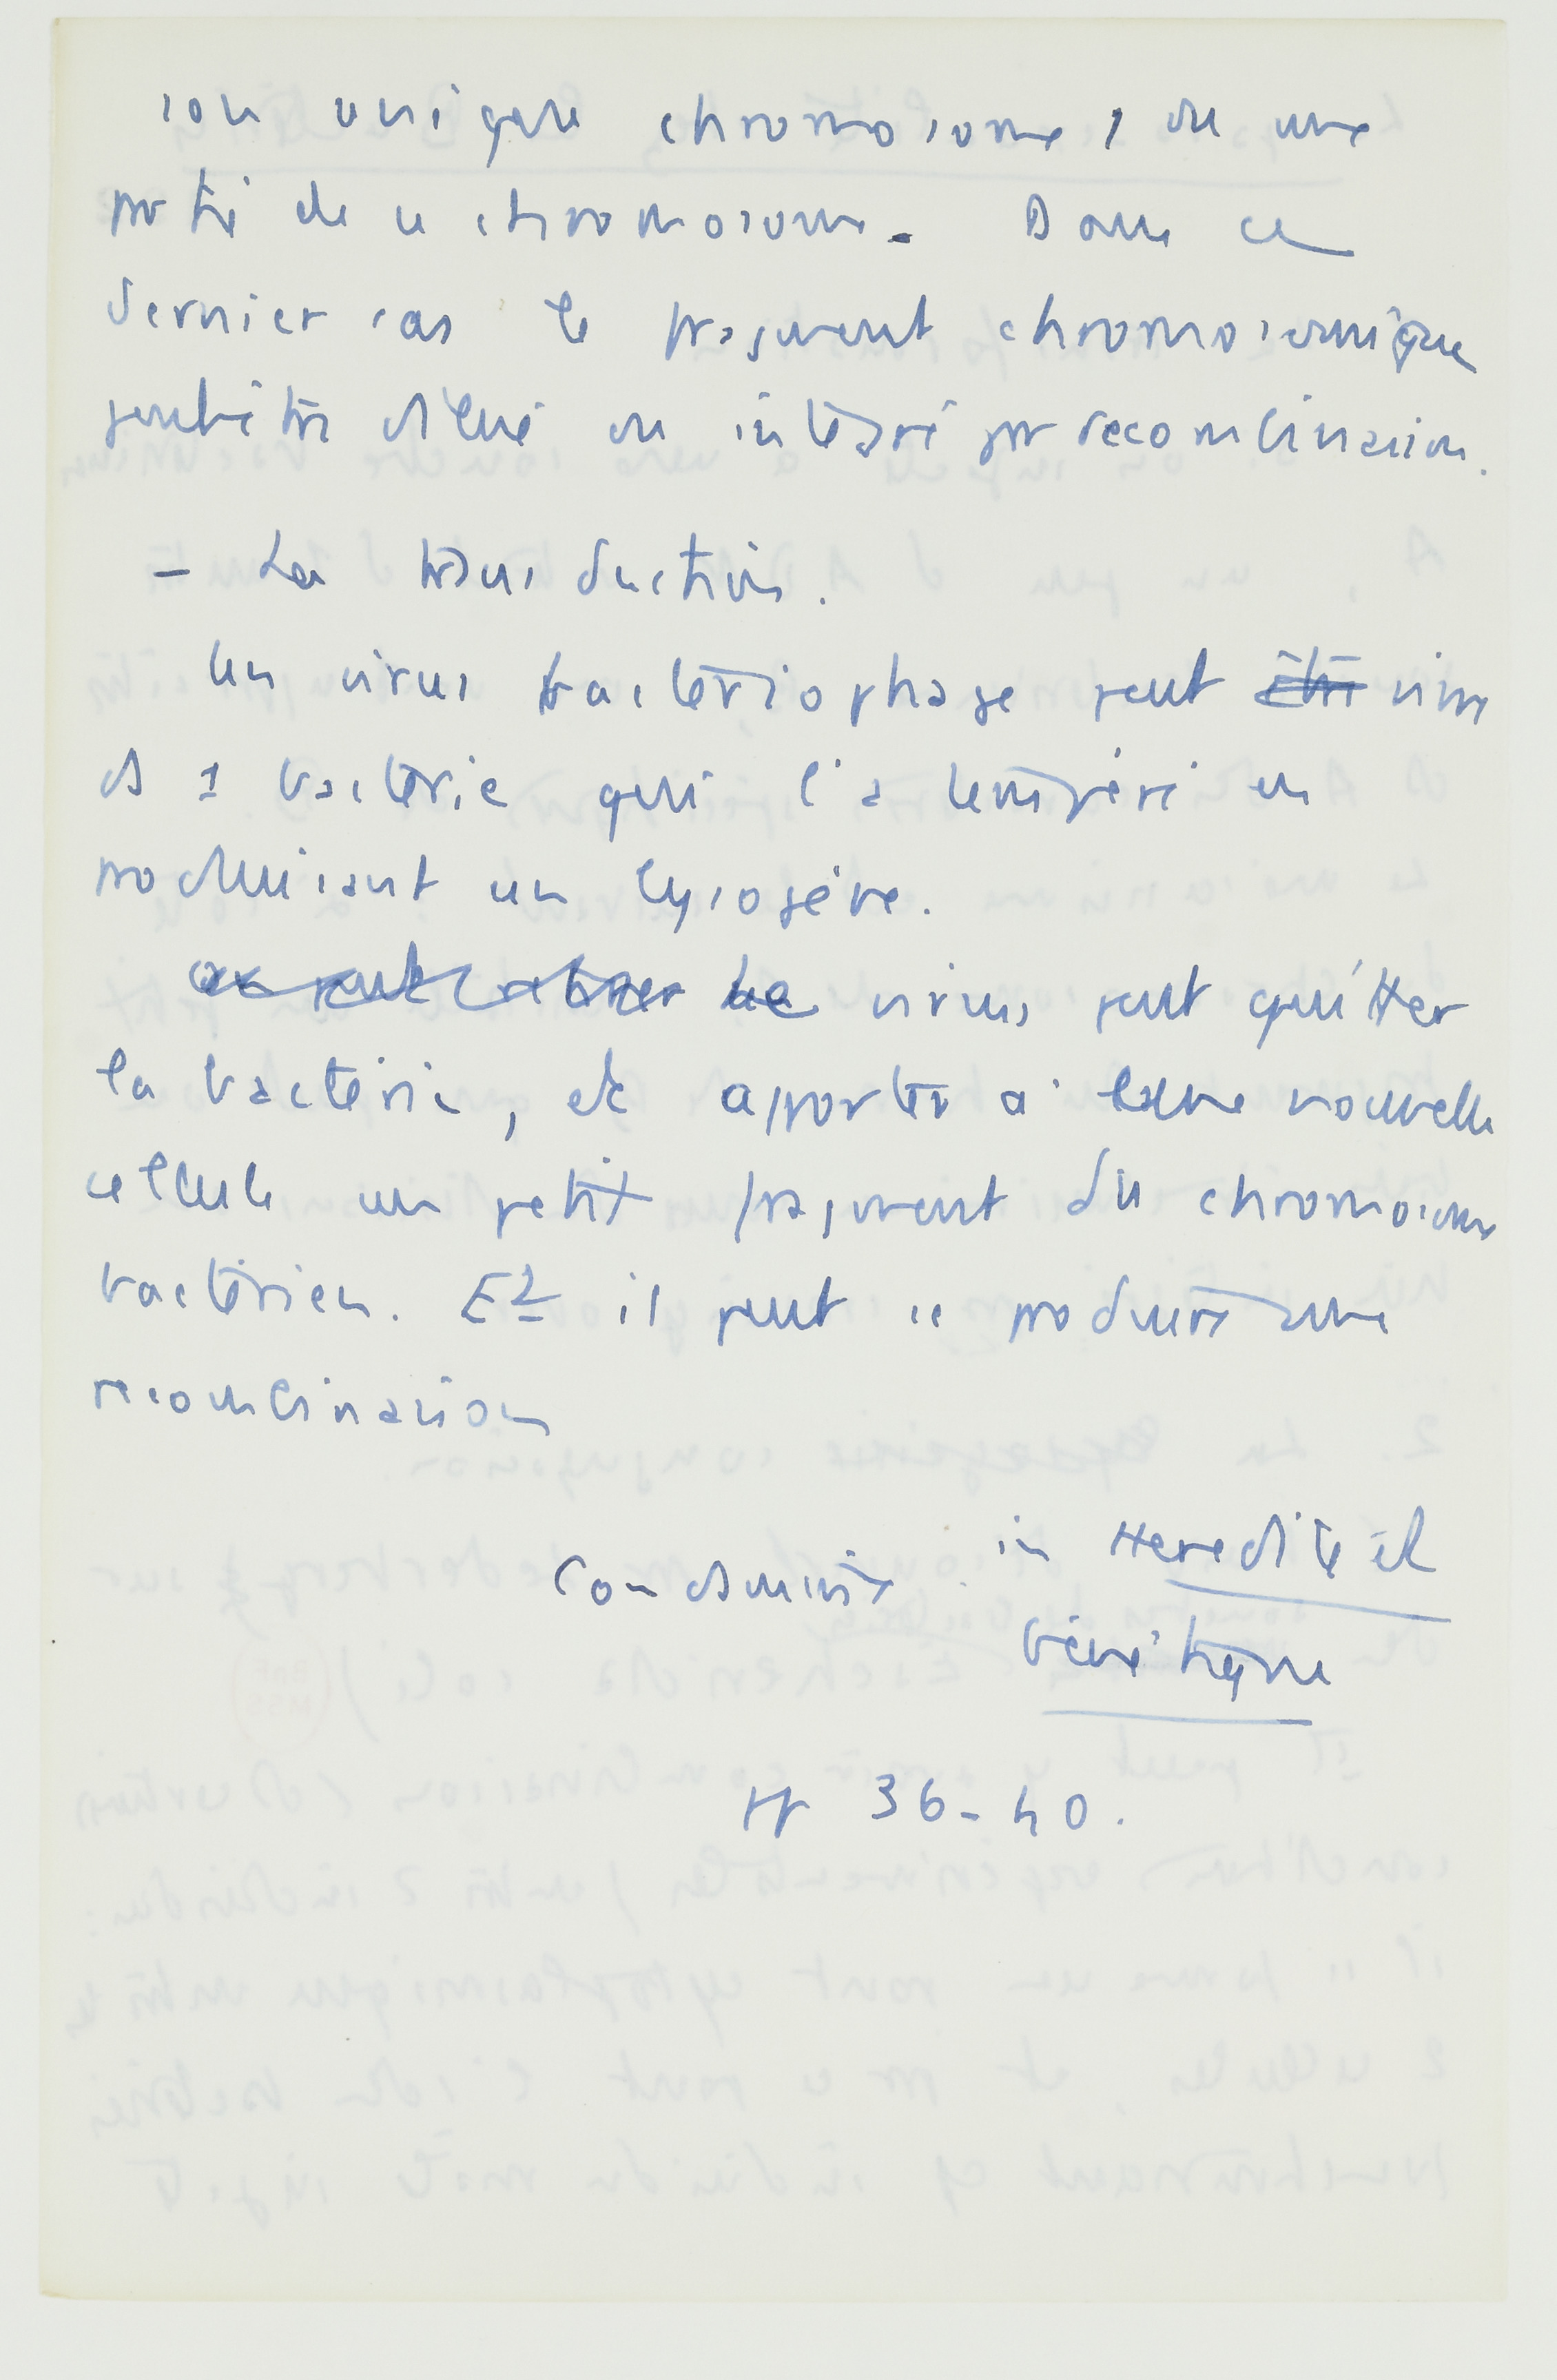 son unique chromosome, ou une
partie de ce chromosome. Dans ce
dernier cas le fragment chromosomique
peut être dilué ou intégré par recombinaison.
– La transduction.
Un virus bactériophage peut être vivre
ds 1 bactérie qui l'a tempéré en
produisant un lysogène.
Le virus peut quitter
la bactérie, et apporter à une nouvelle
cellule un petit fragment du chromosome
bactérien. Et il peut se produire une
recombinaison
in Heredité et
Génétique
pp 36-40.